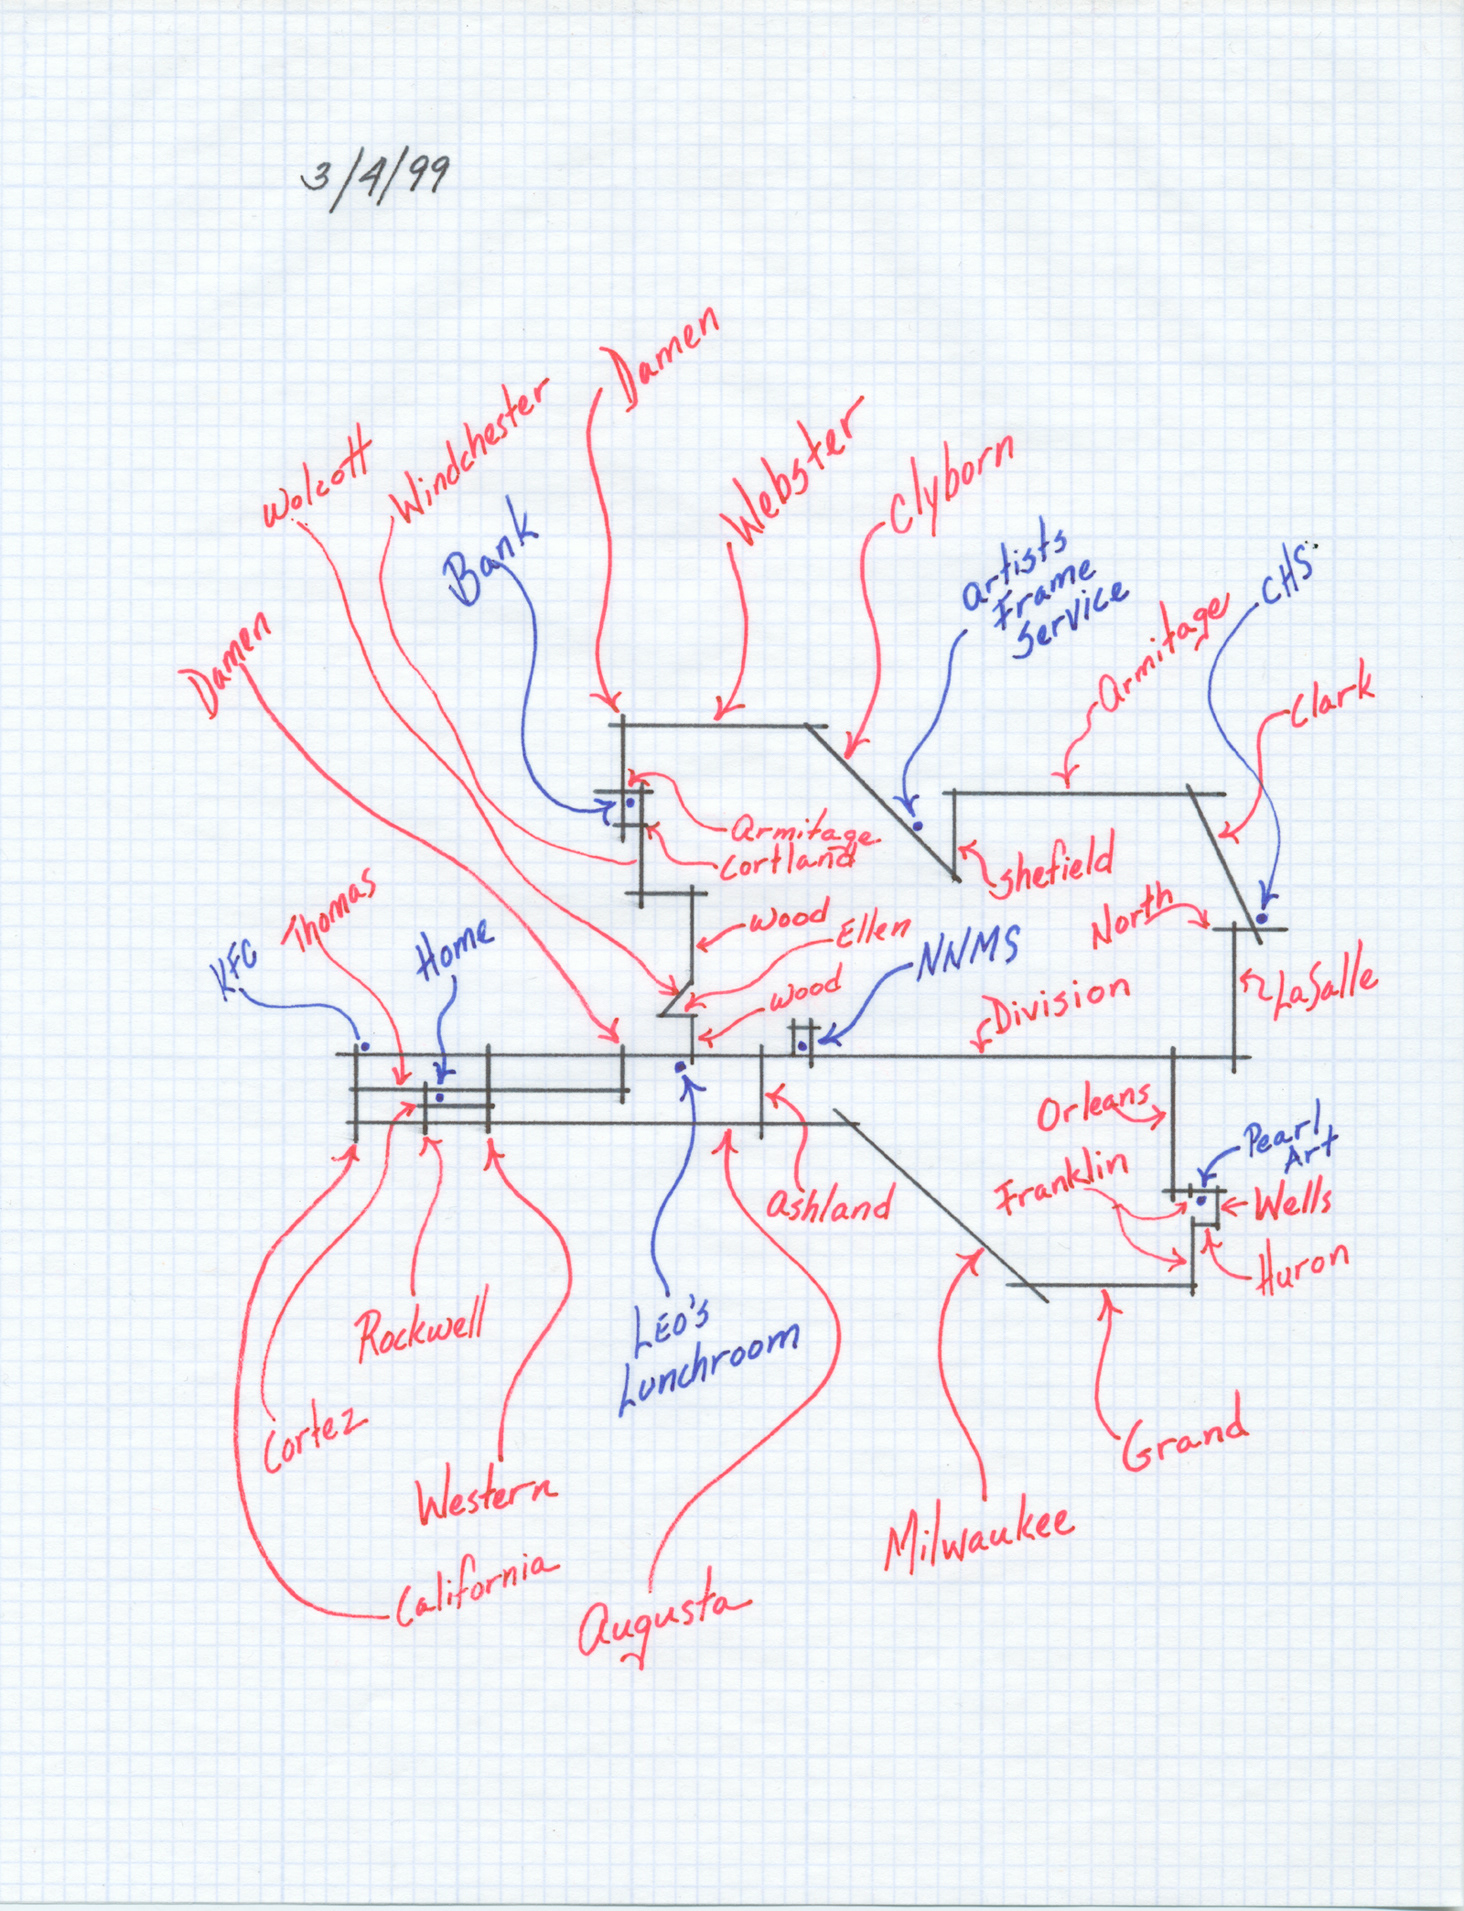 3/4/99
Damen
Windchester
Wolcott
Webster
Clyborn
Bank
Artists
Frame
Service
CHS
Armitage
Damen
Clark
Armitage
Cortland
Shefield
Thomas
North
Wood
Ellen
Home
KFC
NNMS
LaSalle
Wood
Division
Orleans
Pearl
Art
Franklin
Wells
Ashland
Huron
Rockwell
LEO'S
Lunchroom
Cortez
Grand
Western
Milwaukee
California
Augusta